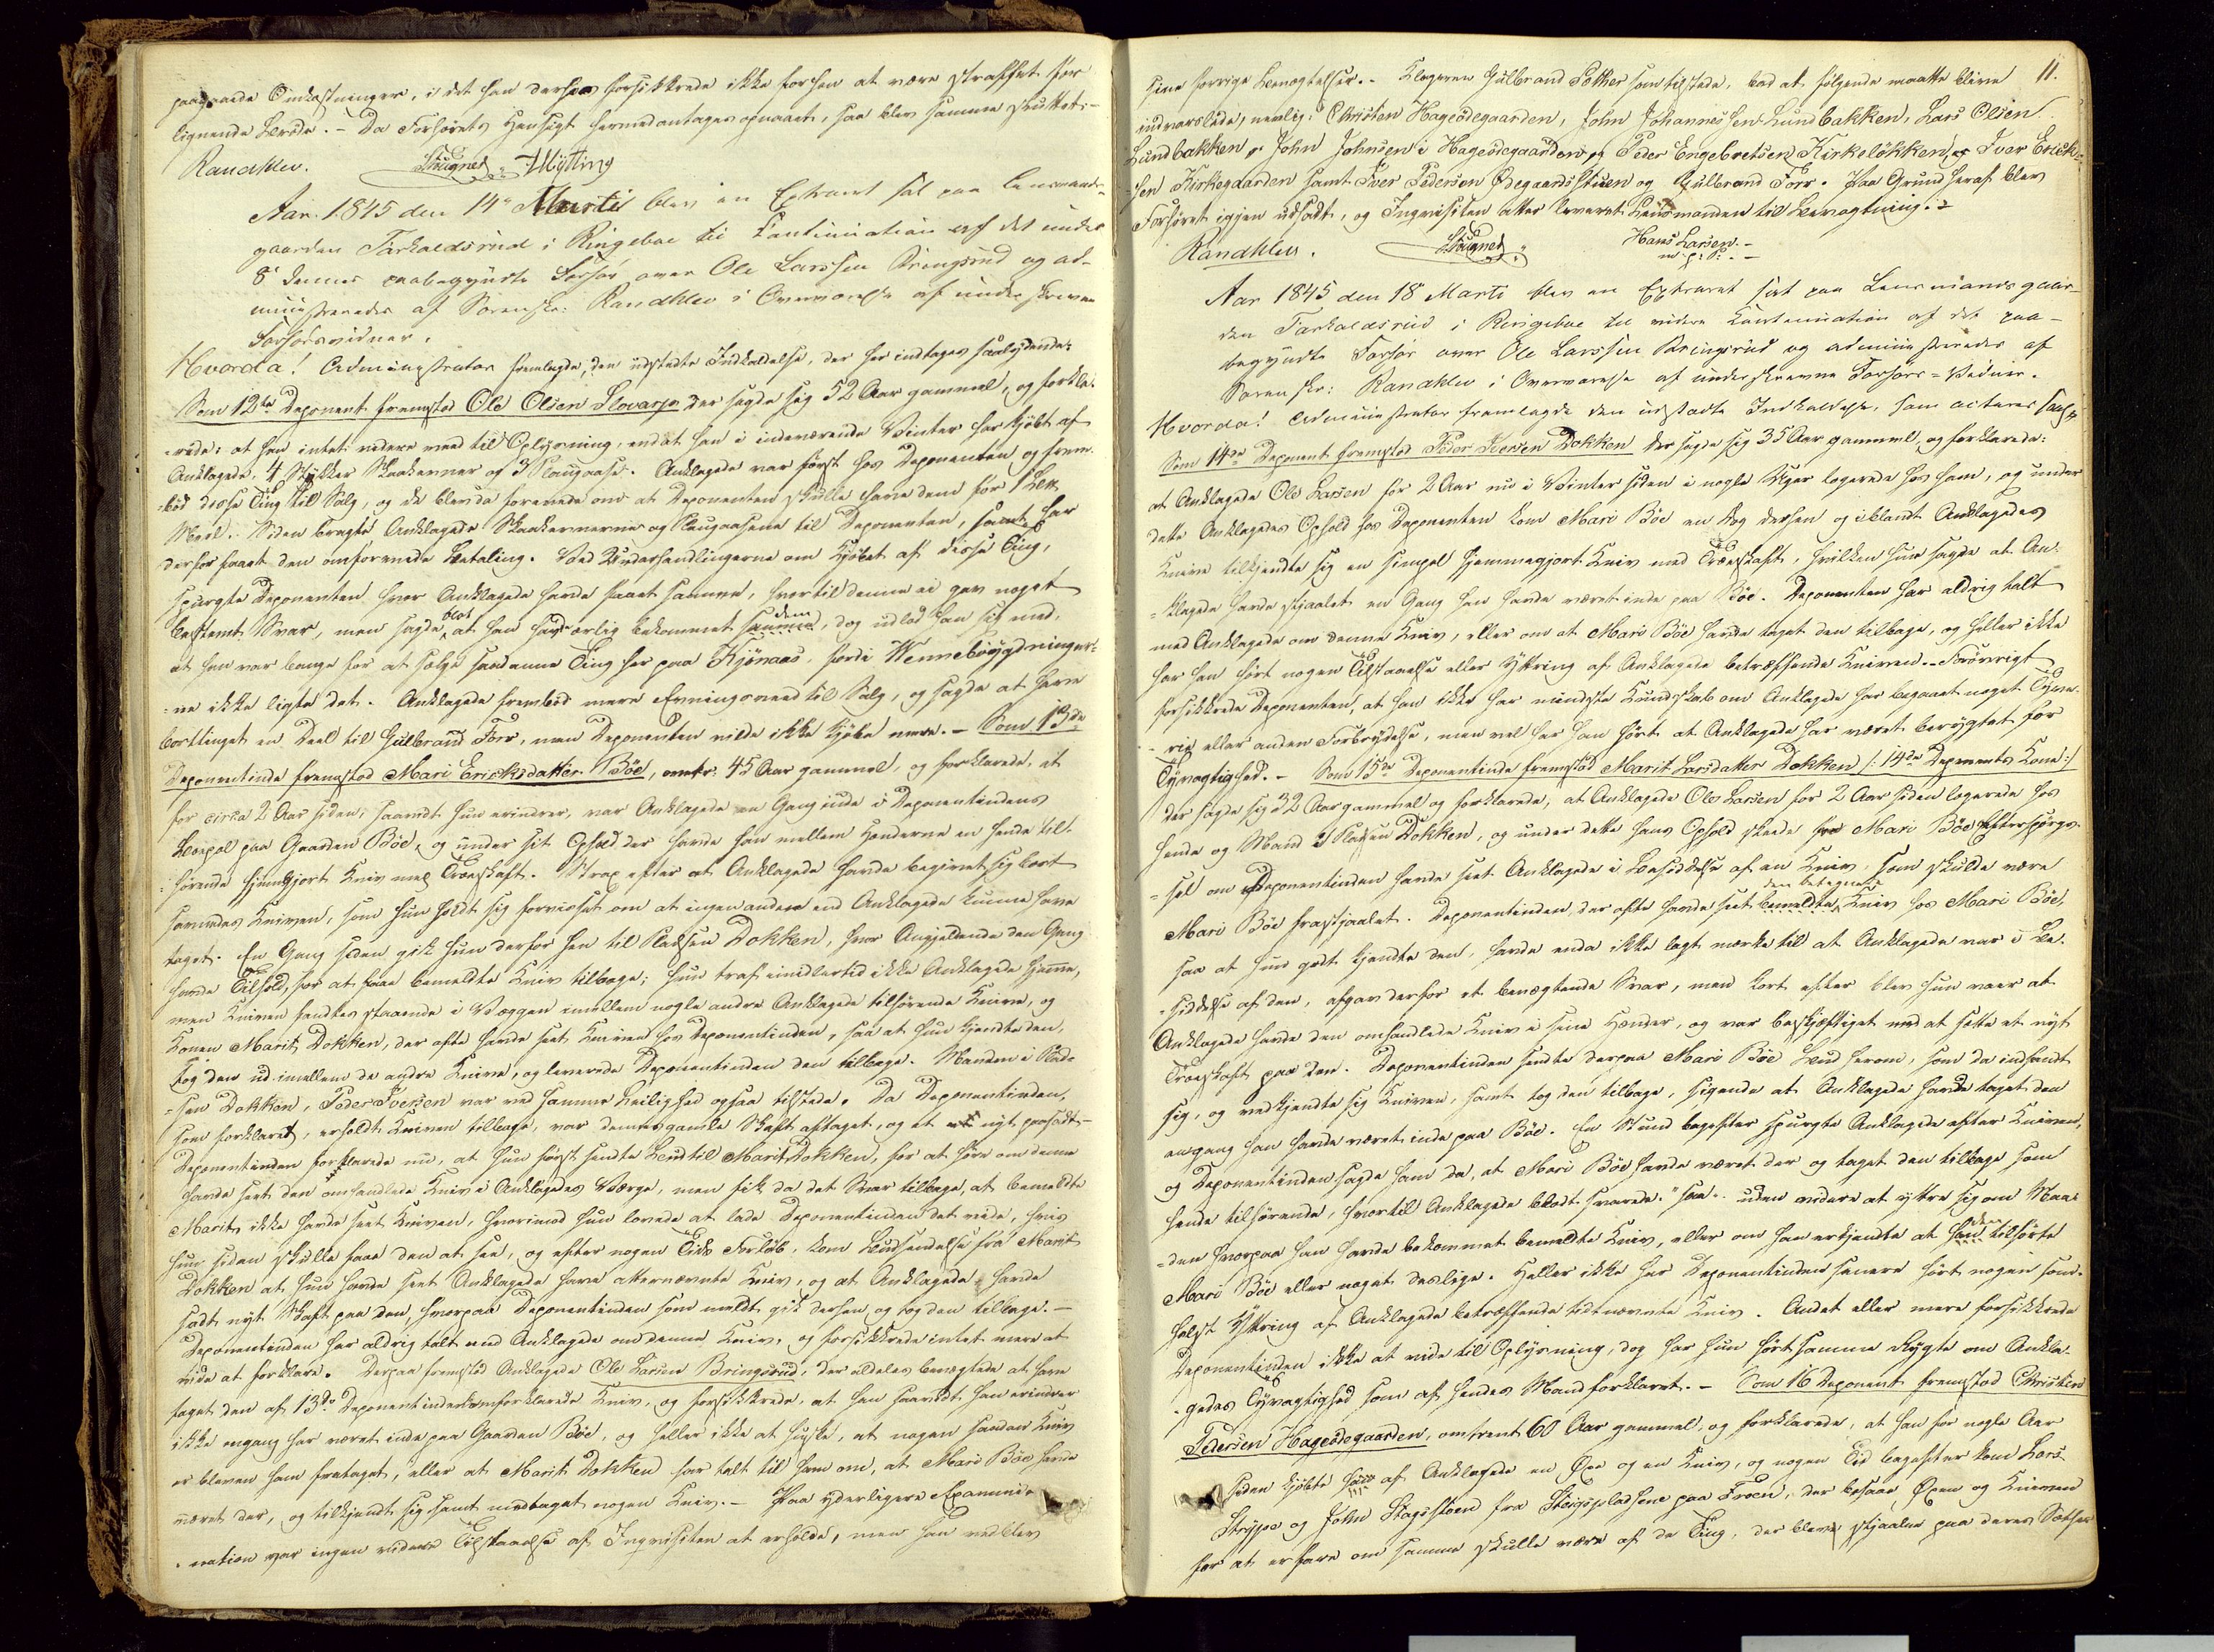 paagaaende Indkastninger, i det han dersom forsikkrede ikke forhen at være straffet for
lignende Brøde. - Da Forhørets Hensigt hermed antages opnaaet, saa blev samme sluttet. -
Randklev. Stügnes. Hÿtting
Aar 1845 den 14de Marti blev en Extraret sat paa Lensmands-
gaarden Tarkaldsrüd i Ringeboe til Continuation af det under
8de dennes paabegÿndte Forhør over Ole Larssen Bringsrüd og ad-
ministreredes af Sorenskr: Randklev i Overværelse af underskrevne
Forhørsvidner.
Hvorda! Administrator fremlagde den udstædte Indkaldelse, der her indtages saalÿdende:
Som 12te Deponent fremstod Ole Olsen Slovarp der sagde sig 52 Aar gammel, og forkla-
rede: at han intet videre veed til Oplÿsning, end at han i indeværende Vinter har kjøbt af
Anklagede, 4 Stÿkker Skaakarmer og 3 Plougaase. Anklagede var først hos Deponenten og frem-
bød disse Ting til Salg, og de bleve da forenede om at Deponenten skulle have dem for 1
Meel. Siden bragte Anklagede Skaakermerne og Plougaasene til Deponenten, samt har
derfor faaet den omforenede Betaling. Ved Underhandlingerne om Kjøbet af disse Ting,
spurgte Deponenten hvor Anklagede havde faaet samme, hvortil denne ei gav noget
bestemt Svar, men sagde blot at han havde ærlig bekommet samme dem, dog udlod han sig med,
at han var bange for at sælge saadanne Ting her paa Kjønaas, fordi Wennebÿgdninger-
ne ikke ligte det. Anklagede frembød mere til Salg, og sagde at have
bortlinget en Deel til Gülbrand Forr, men Deponenten vilde ikke kjøbe mere. - Som 13de
Deponentinde fremstod Mari Ericksdatter Böe, omtr: 45 Aar gammel, og forklarede, at
for circa 2 Aar siden, saavidt hun erindrer, var Anklagede en Gang inde i Deponentindens
paa Gaarden Böe, og under sit Ophold der havde han mellem Hænderne en hende til-
hørende hjemgjort Kniv med Træskaft. Strax efter at Anklagede havde begivet sig bort
savnedes Kniven, som hun holdt sig forvisset om at ingen anden end Anklagede kunne have
taget. En Gang siden gik hun derfor hen til Pladsen Dokken, hvor Angjeldende den Gang
havde Tilhold, for at faae bemeldte Kniv tilbage; hun traf imidlertid ikke Anklagede hjemme,
men Kniven fandtes staaende i Væggen imellem nogle andre Anklagede tilhørende Knive, og
Konen Marit Dokken, der ofte havde seet Kniven hos Deponentinden, saa at hun kjendte den,
tog den ud imellem de andre Knive, og leverede Deponentinden den tilbage. Manden i Plad-
sen Dokken, Peder Iversen var ved samme Leilighed ogsaa tilstede. Da Deponentinden,
som forklaret, erholdt Kniven tilbage, var dennes gamle Skaft aftaget, og et nÿt paasadt. -
Deponentinden forklarede nu, at hun først sendte Bud til Marit Dokken, for at høre om denne
havde seet den omhandlede Kniv i Anklagedes Værge, men fik da det Svar tilbage, at bemeldte
Marit ikke havde seet Kniven, hvorimod hun lovede at lade Deponentinden det vide, hvis
hun siden skulle faae den at see, og efter nogen Tids Forløb, kom Budsendelse fra Marit
Dokken at hun havde seet Anklagede have allernævnte Kniv, og at Anklagede havde
sadt nÿt Skaft paa den, hvorpaa Deponentinden som meldt gik derhen og tog den tilbage. -
Deponentinden har aldrig talt med Anklagede om denne Kniv, og forsikkrede intet mere at
vide at forklare. Derpaa fremstod Anklagede Ole Larsen Bringsrüd, der aldeles benægtede at have
taget den af 13de Deponentinde omforklarede Kniv, og forsikkrede, at han saavidt han erindrer
ikke engang har været inde paa Gaarden Böe, og heller ikke at huske, at nogen saadan Kniv
er bleven ham frataget, eller at Marit Dokken har talt til ham om, at Mari Böe havde
været der, og tilkjendt sig samt modtaget nogen Kniv. - Paa ÿderligere Exami-
nation var ingen videre Tilstaaelse af Inqvisiten at erholde, men han vedblev
11.
sine forrige Benægtelser. - Klageren Gülbrand Fother som tilstede, bad at følgende maatte blive
indvarslede, nemlig: Christen Hageödegaarden, John Johannessen Lundbakken, Lars Olsen
Lundbakken, John Johnsen i Hageödegaarden og Peder Engebretsen Kirkelökken, og Iver Erick-
sen Kirkegaarden samt Iver Pedersen Ödegaardsstuen og Gulbrand Forr. Paa Grund heraf blev
Forhøret igjen udsadt, og Inqvisiten atter leveret Lensmanden til Bevogtning. -
Randklev. Stügnes. Hans Larsen. -
m. p. P. -
Aar 1845 den 18 Marti blev en Extraret sat paa Lensmandsgaar-
den Tarkaldsrüd i Ringeboe til videre Continuation af det paa-
begÿndte Forhør over Ole Larssen Bringsrüd og administreredes af
Sorenskr: Randklev i Overværelse af underskrevne Forhørs-Vidner.
Hvorda! Administrator fremlagde den udstædte Indkaldelse, som acteres saal:
Som 14de Deponent fremstod Peder Iversen Dokken der sagde sig 35 Aar gammel, og forklarede:
at Anklagede Ole Larsen for 2 Aar nu i Vinter siden i nogle Uger logerede hos ham, og under
dette Anklagedes Ophold hos Deponenten kom Mari Böe en Dag derhen og iblandt Anklagedes
Knive tilkjendte sig en simpel hjemmegjort Kniv med Træskaft, hvilken hun sagde at An-
klagede havde stjaalet en Gang han havde været inde paa Böe. Deponenten har aldrig talt
med Anklagede om denne Kniv, eller om at Mari Böe havde taget den tilbage, og heller ikke
har han hørt nogen Tilstaaelse eller Ÿttring af Anklagede betræffende Kniven. - Forøvrigt
forsikkrede Deponenten, at han ikke har mindste Kundskab om Anklagede har begaaet noget Tÿve-
rie eller anden Forbrÿdelse, men vel har han hørt at Anklagede har været berÿgtet for
Tÿvagtighed. - Som 15de Deponentinde fremstod Marit Larsdatter Dokken /: 14de Deponents Kone :/
der sagde sig 32 Aar gammel og forklarede, at Anklagede Ole Larsen for 2 Aar siden logerede hos
hende og Mand i Pladsen Dokken, og under dette hans Ophold skeede fra Mari Böe Efterspørgs-
sel om Deponentinden havde seet Anklagede i Besiddelse af en Kniv, som skulde være
Mari Böe frastjaalet. Deponentinden, der ofte havde seet bemeldte den betegnede Kniv hos Mari Böe,
saa at hun godt kjendte den, havde endda ikke lagt mærke til at Anklagede var i Be-
siddelse af den, afgav derfor et benægtende Svar, men kort efter blev hun vaer at
Anklagede havde den omhandlede Kniv i sine Hænder, og var beskjæftiget med at sætte et nÿt
Træskaft paa den. Deponentinden sendte derpaa Mari Böe Bud herom, som da indfandt
sig, og vedkjendte sig Kniven, samt tog den tilbage, sigende at Anklagede havde taget den
engang han havde været inde paa Böe. En Stund bagefter spurgte Anklagede efter Kniven,
og Deponentinden sagde ham da, at Mari Böe havde været der og taget den tilbage som
hende tilhørende, hvortil Anklagede blodt svarede: "saa". uden videre at ÿttre sig om Maa-
den hvorpaa han havde bekommet bemeldte Kniv, eller om han erkjendte at han den tilhørte
Mari Böe eller noget deslige. Heller ikke har Deponentinden senere hørt nogen som-
helst Ÿttring af Anklagede betræffende tidtnævnte Kniv. Andet eller mere forsikkrede
Deponentinden ikke at vide til Oplÿsning, dog har hun hørt samme Rÿgte om Ankla-
gedes Tÿvagtighed som af hendes Mand forklaret. - Som 16 Deponent fremstod Christen
Pedersen Hageödegaarden, omtrent 60 Aar gammel, og forklarede, at han for nogle Aar
siden kjøbte af Anklagede en Øxe og en Kniv, og nogen Tid bagefter kom Lars
Strÿpe og John Stagstoen fra Steigspladsene paa Froen, der besaae Øxen og Kniven
for at erfare om samme skulle være af de Ting, der bleve stjaalne paa deres Sæther